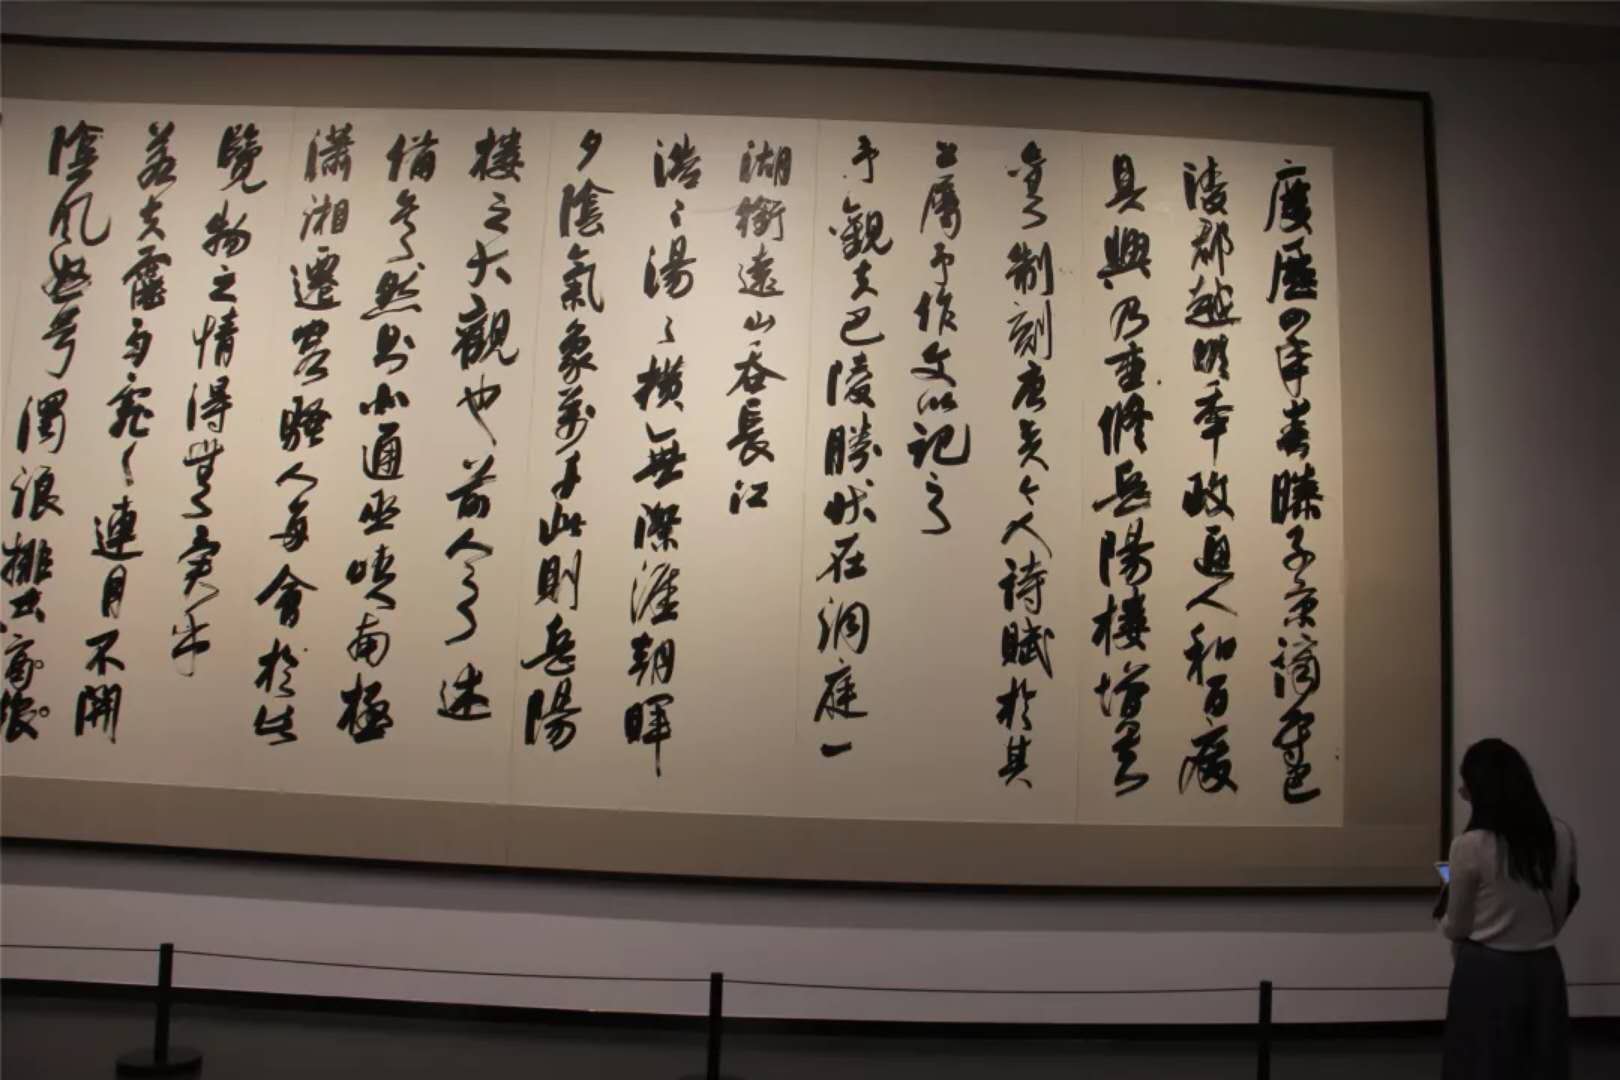 慶曆四年春滕子京謫守巴
陵郡越明年政通人和百廢
具興乃重修岳陽樓增其
舊制刻唐賢今人詩賦於其
上屬予作文以記之
予觀夫巴陵勝狀在洞庭一
湖銜遠山吞長江
浩〻湯〻橫無際涯朝暉
夕陰氣象萬千此則岳陽
樓之大觀也前人之述
備矣然則北通巫峽南極
瀟湘遷客騷人多會於此
覽物之情得無異乎
若夫霪雨霏〻連月不開
陰風怒号濁浪排空